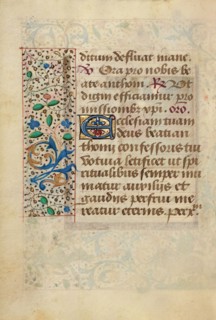 ditum defluat mane.
V Ora pro nobis be
ate anthoni. R Ut
digni efficiamur pro
missionibz xpi. oro.
Ecclesiam tuam
deus beati an
thonij confessoris tui
votiva letificet ut spi
ritualibus semper mu
niatur auxilijs et
gaudijs perfrui me
reatur eternis. per xpm